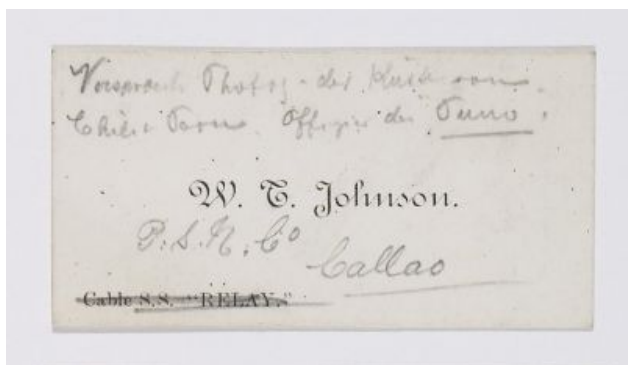 Versprach Photog. der Küste von
Chile u Offizier des Puno.
W. T. Johnson.
P. S. N. Co
Callao
Cable S.S. "RELAY."